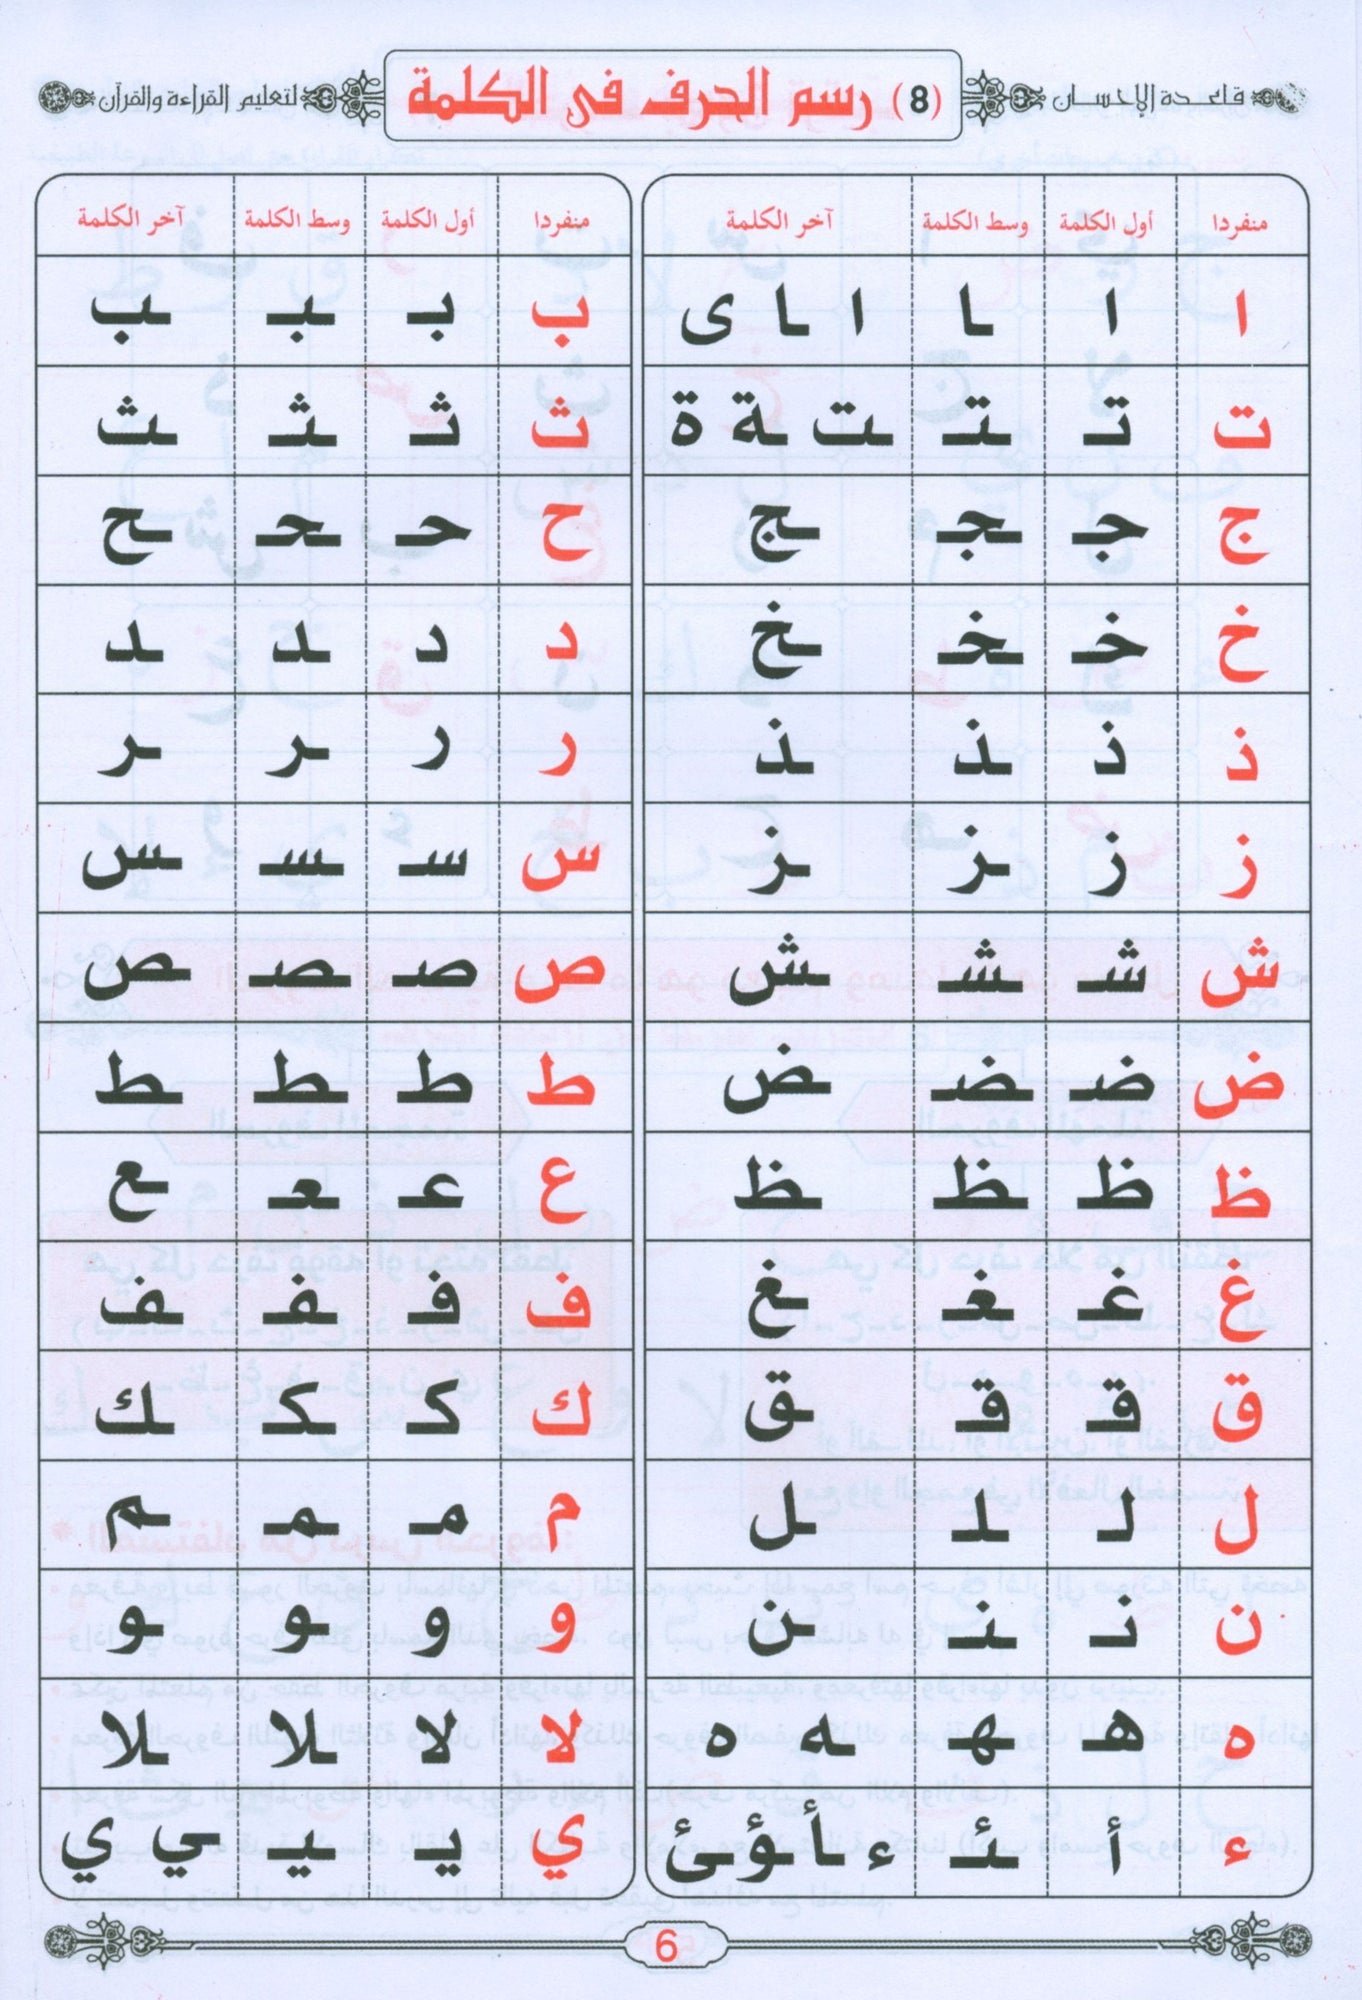 قاعدة الإحسان (8) رسم الحرف في الكلمة لتعليم القراءة والقرآن
منفردا أول الكلمة وسط الكلمة آخر الكلمة منفردا أول الكلمة وسط الكلمة آخر الكلمة
ا ا ـا ا ـا ى ب بـ ـبـ ـب
ت تـ ـتـ ـت ـة ة ث ثـ ـثـ ـث
ج جـ ـجـ ـج ح حـ ـحـ ـح
خ خـ ـخـ ـخ د د ـد ـد
ذ ذ ـذ ـذ ر ر ـر ـر
ز ز ـز ـز س سـ ـسـ ـس
ش شـ ـشـ ـش ص صـ ـصـ ـص
ض ضـ ـضـ ـض ط ط ـط ـط
ظ ظ ـظ ـظ ع عـ ـعـ ـع
غ غـ ـغـ ـغ ف فـ ـفـ ـف
ق قـ ـقـ ـق ك كـ ـكـ ـك
ل لـ ـلـ ـل م مـ ـمـ ـم
ن نـ ـنـ ـن و و ـو ـو
ه هـ ـهـ ـه ه لا لا ـلا ـلا
ء أ ـئـ ء ـأ ـؤ ئ ي يـ ـيـ ـي ي
6